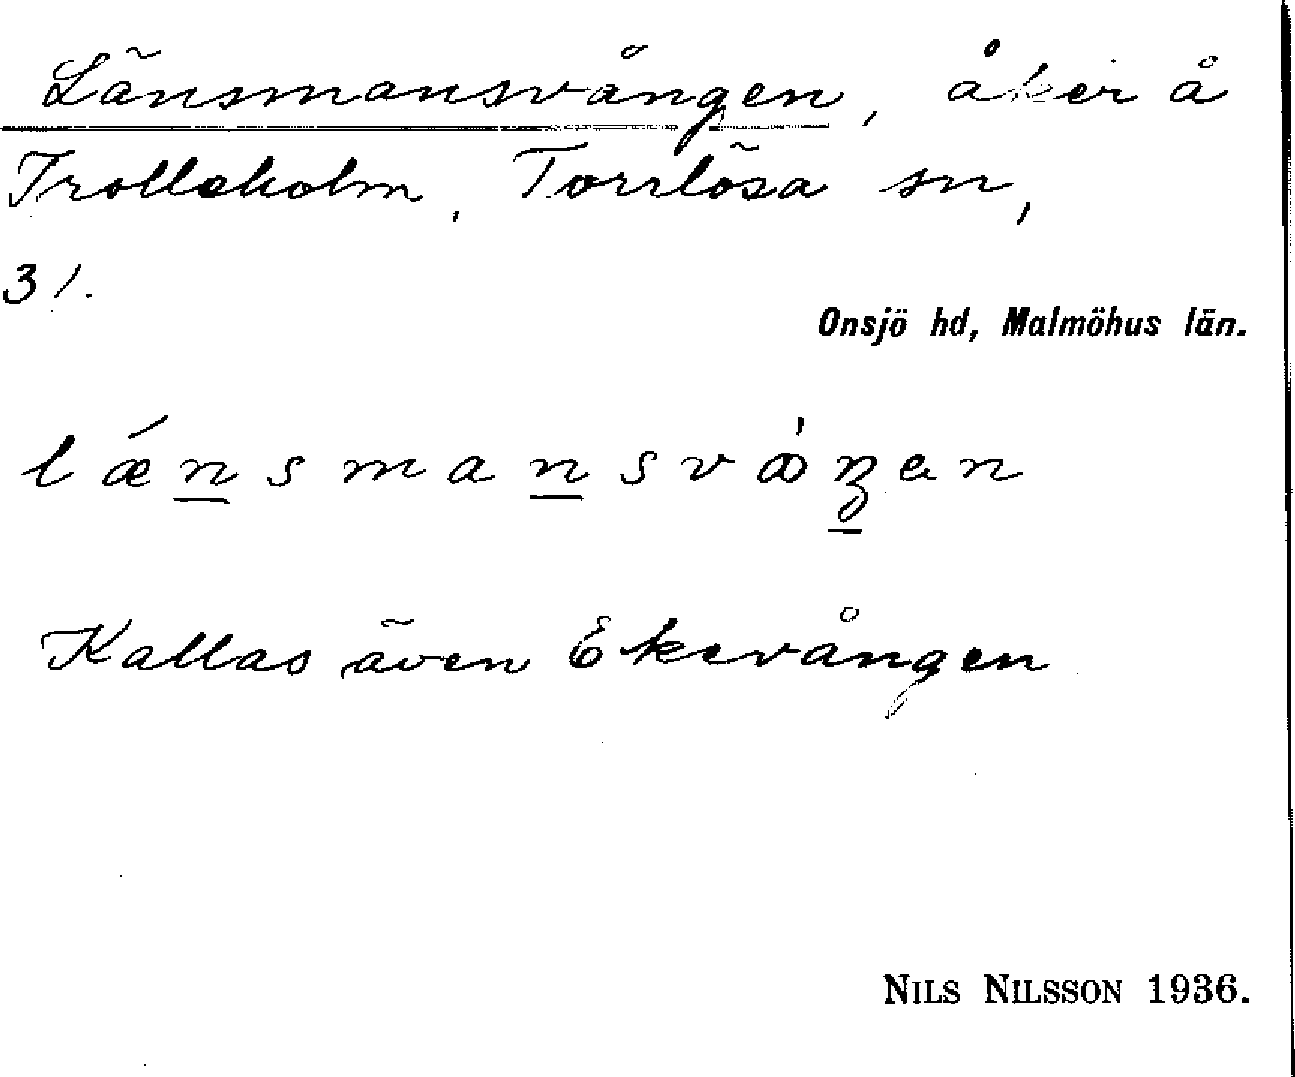 Länsmansvången, åker å
Trolleholm, Torrlösa sn,
31.
Onsjö hd, Malmöhus län.
lǽnsmansvåŋen
Kallas även Ekevången
NILS NILSSON 1936.